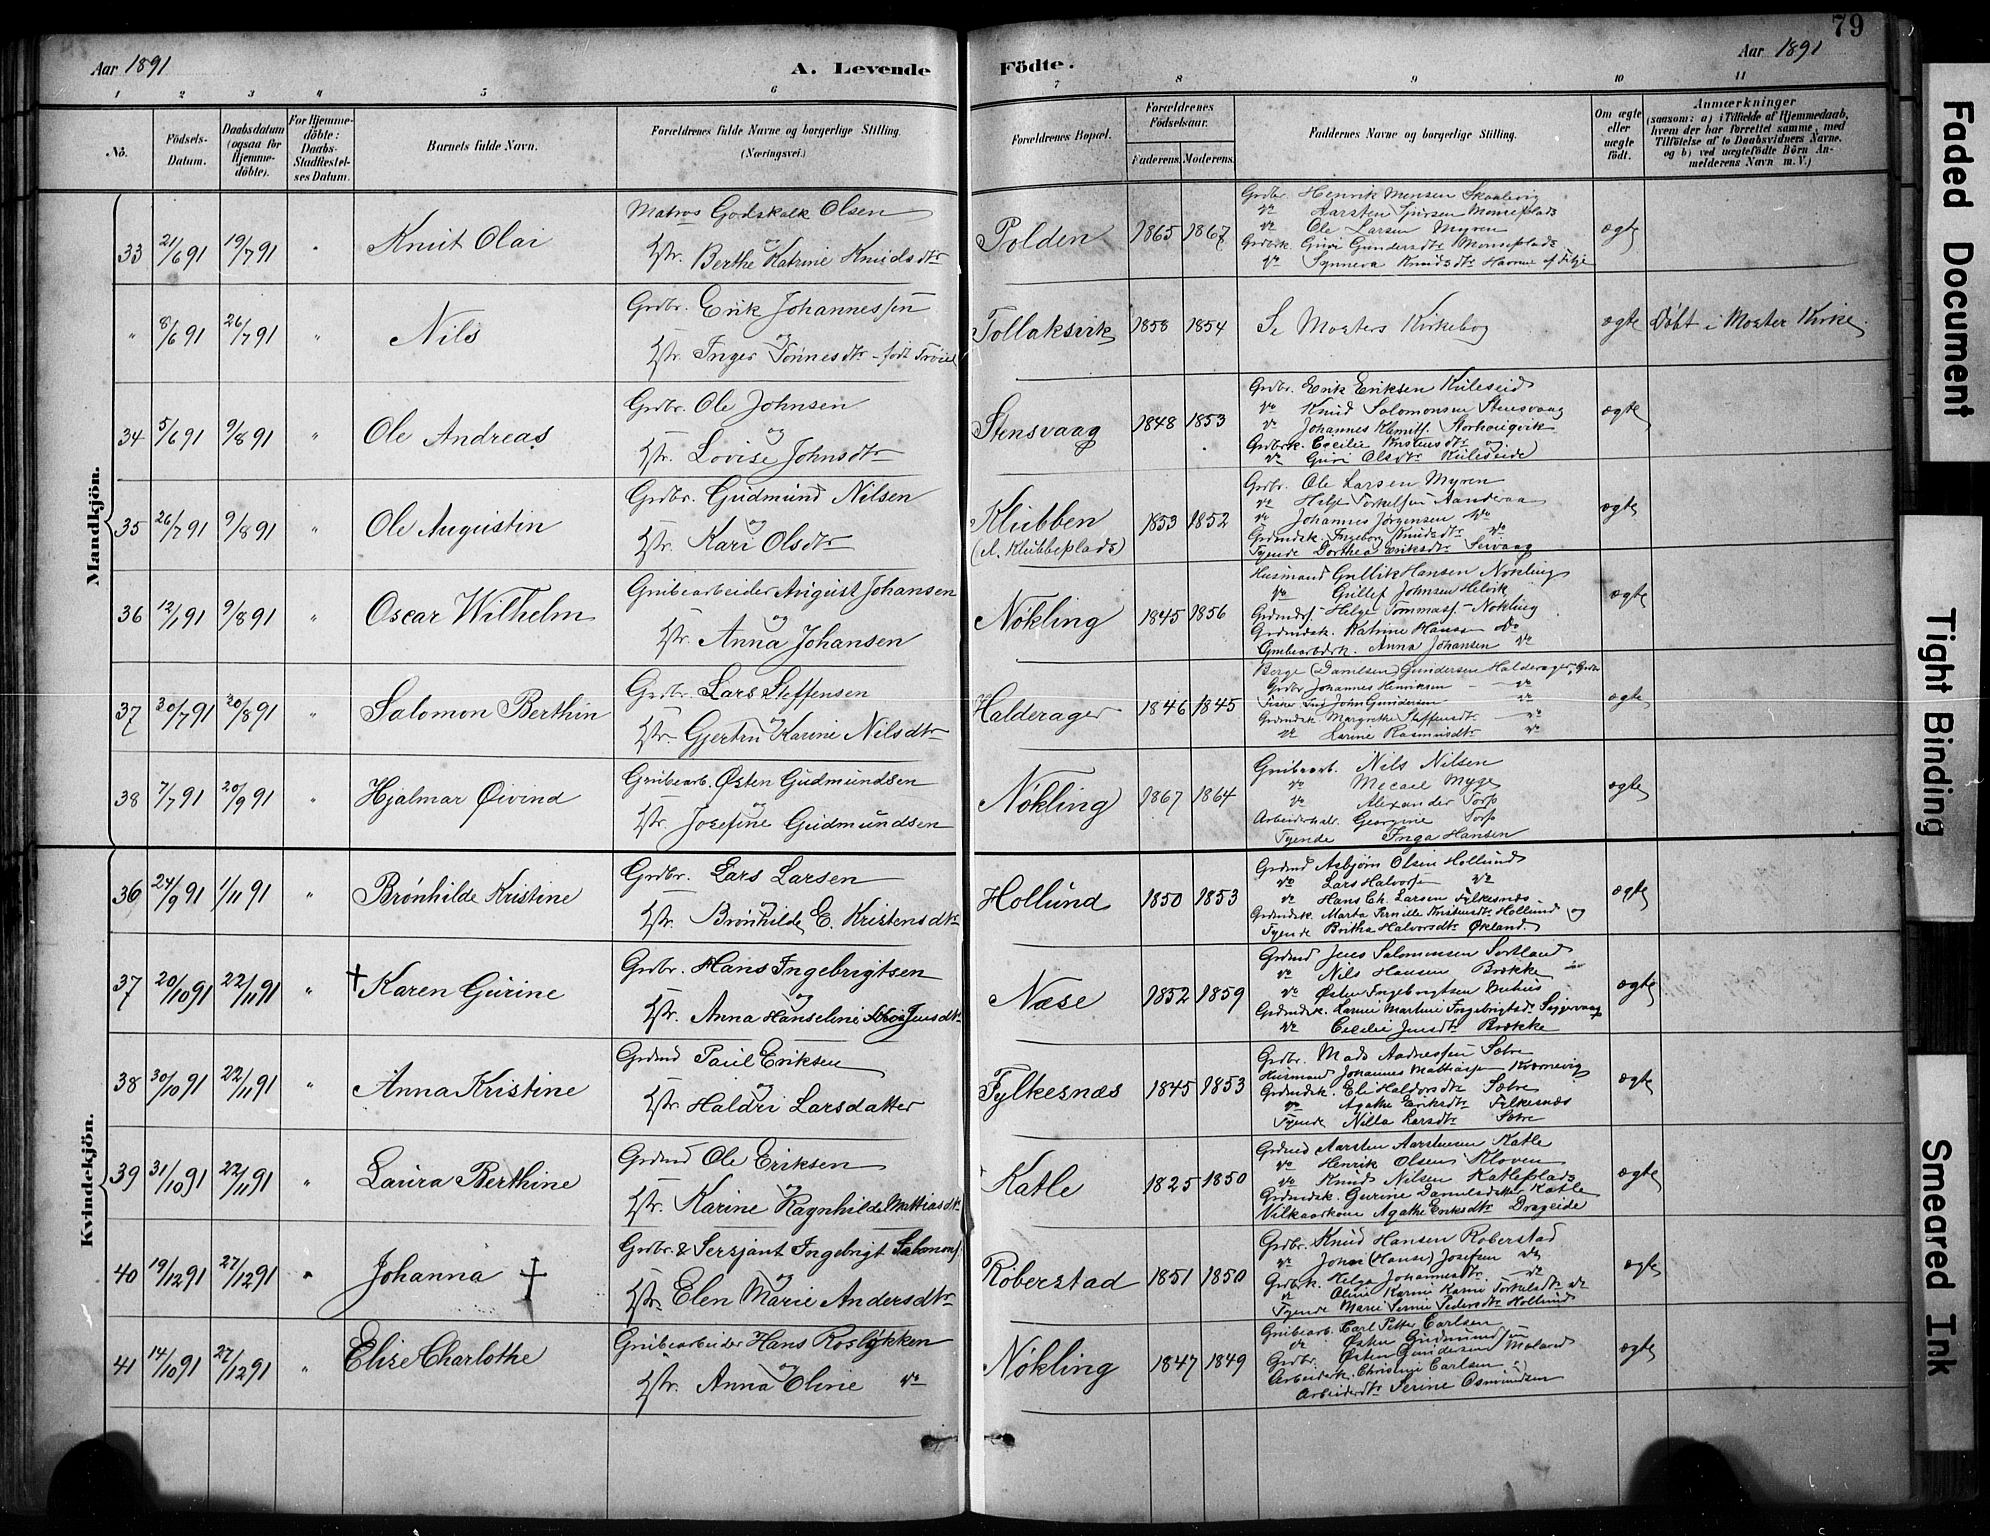 79
Aar 1891
A. Levende
Födte.
Aar 1891
1 2 3 4 5 6 7 8 9 10 11
No.
Födsels-Datum.
Daabsdatum (ogsaa for Hjemme-döbte).
For Hjemme-döbte: Daabs-Stadfestel-ses Datum.
Barnets fulde Navn.
Forældrenes fulde Navne og borgerlige Stilling.
(Næringsvei.)
Forældrenes Bopæl.
Forældrenes Födselsaar.
Faderens. Moderens.
Faddernes Navne og borgerlige Stilling.
Om ægte eller uægte födt.
Anmærkninger
(saasom: a) i Tilfælde af Hjemmedaab, hvem der har forrettet samme, med Tilföielse af to Daabsvidners Navne, og b) ved uægtefödte Börn An-melderens Navn m. V.)
Mandkjön.
33 21/6 91 19/7 91 " Knut Olai
Matros Godskalk Olsen
og
Hstr. Berthe Katrine Knudsdtr
Polden 1865 1867
Grdbr. Henrik Monsen Skaalevig
do Aarsten
do Ole Larsen Myren
Grdbrk. Guri Gundersdtr
do Synneva Knudsdtr
ægte
" 8/6 91 26/7 91 " Nils
Grdbr. Erik Johannessen
og
Hstr. Inger Tönnesdtr - født
Tollaksvik 1858 1854
Se Mosters Kirkebog
ægte
Døbt i Moster Kirke.
34 5/6 91 9/8 91 " Ole Andreas
Grdbr. Ole Johnsen
og
Hstr. Lovise Johnsdtr
Stensvaag 1848 1853
Grdbr. Erik Eriksen Kuleseid
do Knud Salomonsen Stensvaag
do Johannes Klemits. Storhougvik
Grdbrk. Cecilie Kristensdtr og
do Guri Olsdtr Kuleseide
ægte
35 26/7 91 9/8 91 " Ole Augustin
Grdbr. Gudmund Nilsen
og
Hstr. Kari Olsdtr
Klubben
(A. Klubbeplads)
1853 1852
Grdbr. Ole Larsen Myren
do Helge Torkelsen Aanderaa
do Johannes Jørgensen do
Grdmdsk. Ingeborg Knudsdtr do
Tyende Dorthea Eriksdtr Servaag
ægte
36 12/1 91 9/8 91 " Oscar Wilhelm
Grubearbeider August Johansen
og
Hstr. Anna Johansen
Nøkling 1845 1856
Husmand Gullik Hansen Nøkling
do Gullef Johnsen Helvik
Grdmds. Helge Tommass. Nøkling
Grdmdsk. Katrine Hansen do
Grubearbdrk. Anna Johansen do
ægte
37 30/7 91 30/8 91 " Salomon Berthin
Grdbr. Lars Steffensen
og
Hstr. Gjertru Karine Nilsdtr
Halderager 1846 1845
Berge (Danilsen) Gundersen Halderager, Grdbr
Grdbr Johannes Henriksen do
Fisker John Gundersen do
Grdmdsk. Margrethe Steffensdtr do
do Larine Rasmusdtr do
ægte
38 7/7 91 20/9 91 " Hjalmar Øivind
Grubearb. Østen Gudmundsen
og
Hstr. Josefine Gudmundsen
Nökling 1867 1864
Grubearb. Nils Nilsen
do Mecael Myge
do Alexander Torp
Arbeiderk. Georgine Torp
Tyende Inga Hansen
ægte
Kvindekjön.
36 24/9 91 1/11 91 " Brönhilde Kristine
Grdbr. Lars Larsen
og
Hstr. Brönhilde E. Kristensdtr
Hollund 1850 1853
Grdmd Asbjørn Olsen Hollund
do Lars Halvors. do
do Hans Ch. Larsen Fylkesnæs
Grdmdsk. Marta Pernille Kristensdtr Hollund og
Tyende Britha Halvorsdtr Økland.
ægte
37 20/10 91 22/11 91 " † Karen Gurine
Grdbr. Hans Ingebrigtsen
og
Hstr. Anna Hanseline Jensdtr
Næse 1852 1859
Grdmd Jens Salomonsen Sortland
do Nils Hansen Brække
do Østen Ingebrigtsen
Grdmdsk. Larine Martine Ingebrigtsdtr Siggervaag
do Cecilie Jensdtr Brække
ægte
38 30/10 91 22/11 91 " Anna Kristine
Grdmd Paul Eriksen
og
Hstr. Haldri Larsdatter
Fylkesnæs 1845 1853
Grdbr. Mads Aadnessen Sætre
Husmand Johannes Mattiassen Kværnevig
Grdmdsk. Eli Haldorsdtr Sætre
do Agathe Eriksdtr Fylkesnæs
Tyende Nilla Larsdtr Sætre
ægte
39 31/10 91 22/11 91 " Laura Berthine
Grdmd Ole Eriksen
og
Hstr. Karine Ragnhilde Mattiasdtr
Katle 1825 1850
Grdmd Aarsten Aarstensen Katle
do Henrik Olsen Kloven
do Knud Nilsen Katleplads
Grdmdsk. Gurine Danielsdatter Katle
Vilkaarkone Agathe Eriksdtr Drageide
ægte
40 19/12 91 27/12 91 " Johanna †
Grdbr. & Sersjant Ingebrigt Salomons.
og
Hstr. Elen Marie Andersdtr
Röberstad 1851 1850
Grdbr. Knud Hansen Roberstad
do Johan (Hanse) Josefsen do
Grdbrk. Helga Johannesdtr do
do Oline Karine Torkelsdtr do
Tyende Marie Serine Pedersdtr Hollund
ægte
41 14/10 91 27/12 91 " Elise Charlothe
Grubearbeider Hans Roslökken
og
Hstr. Anna Oline do
Nökling 1847 1849
Grubearb. Carl Petter Carlsen
do Østen Gudmundsen
Grdbr. Østen Gundersen Moland
Arbeiderk. Christine Carlsen
Arbeiderdtr Serine Osmundsen
ægte
Faded Document
Tight Binding
Smeared Ink